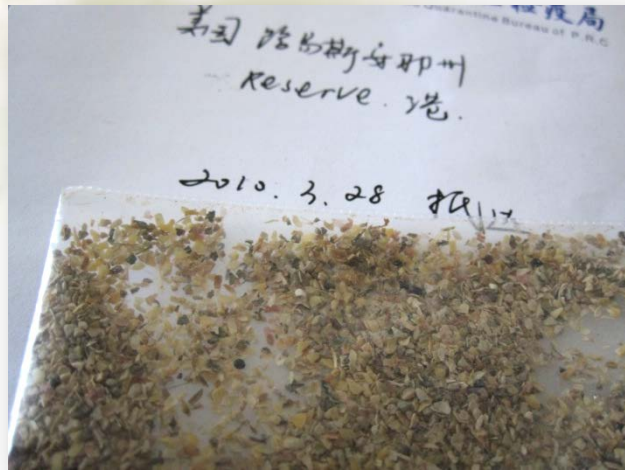 疫局
Quarantine Bureau of P.R.C
美国 路易斯安那州
Reserve. 港.
2010. 3. 28 抵